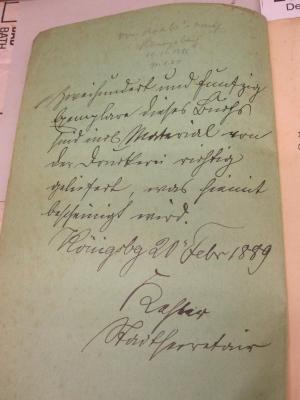 Zweihundert und funfzig
Exemplare dieses Buchs
sind incl. Material von
der Druckerei richtig
geliefert, was hiemit
bescheinigt wird.
Königsbg 20 Febr 1889
Stadtsecretair
BATH
De